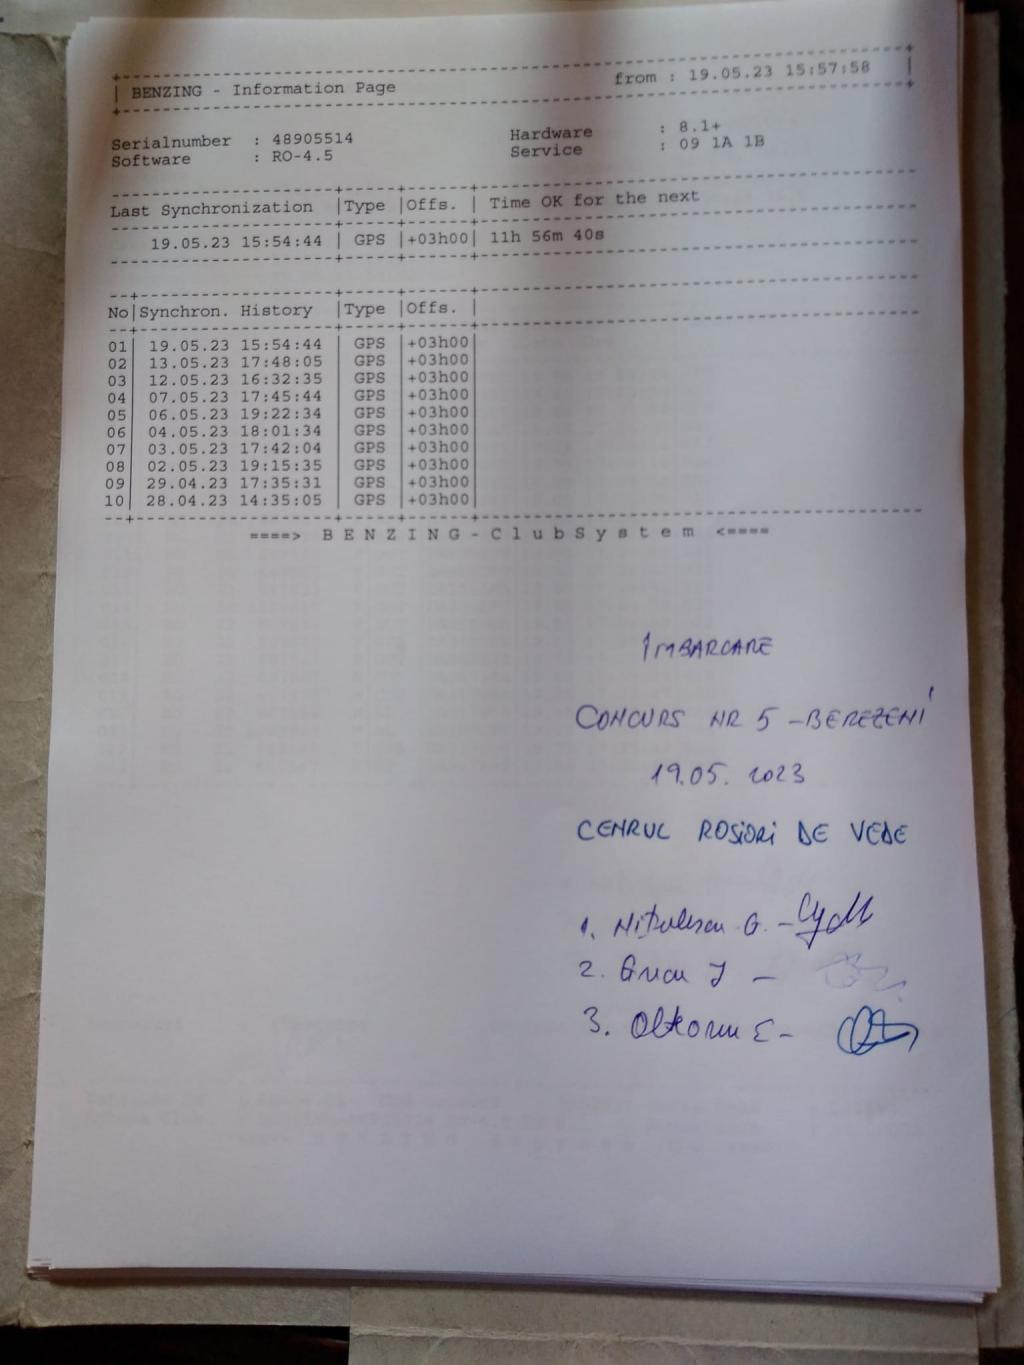 BENZING - Information Page from : 19.05.23 15:57:58
Serialnumber : 48905514 Hardware : 8.1+
Software : RO-4.5 Service : 09 1A 1B
Last Synchronization |Type |Offs. | Time OK for the next
19.05.23 15:54:44 | GPS |+03h00| 11h 56m 40s
No|Synchron. History |Type |Offs. |
01| 19.05.23 15:54:44 | GPS |+03h00|
02| 13.05.23 17:48:05 | GPS |+03h00|
03| 12.05.23 16:32:35 | GPS |+03h00|
04| 07.05.23 17:45:44 | GPS |+03h00|
05| 06.05.23 19:22:34 | GPS |+03h00|
06| 04.05.23 18:01:34 | GPS |+03h00|
07| 03.05.23 17:42:04 | GPS |+03h00|
08| 02.05.23 19:15:35 | GPS |+03h00|
09| 29.04.23 17:35:31 | GPS |+03h00|
10| 28.04.23 14:35:05 | GPS |+03h00|
====> BENZING-ClubSystem <====
IMBARCARE
CONCURS NR 5 - BEREZENI
19.05.2023
CENRUL ROSIORI DE VEDE
1. Nitulescu G. -
2.
3.